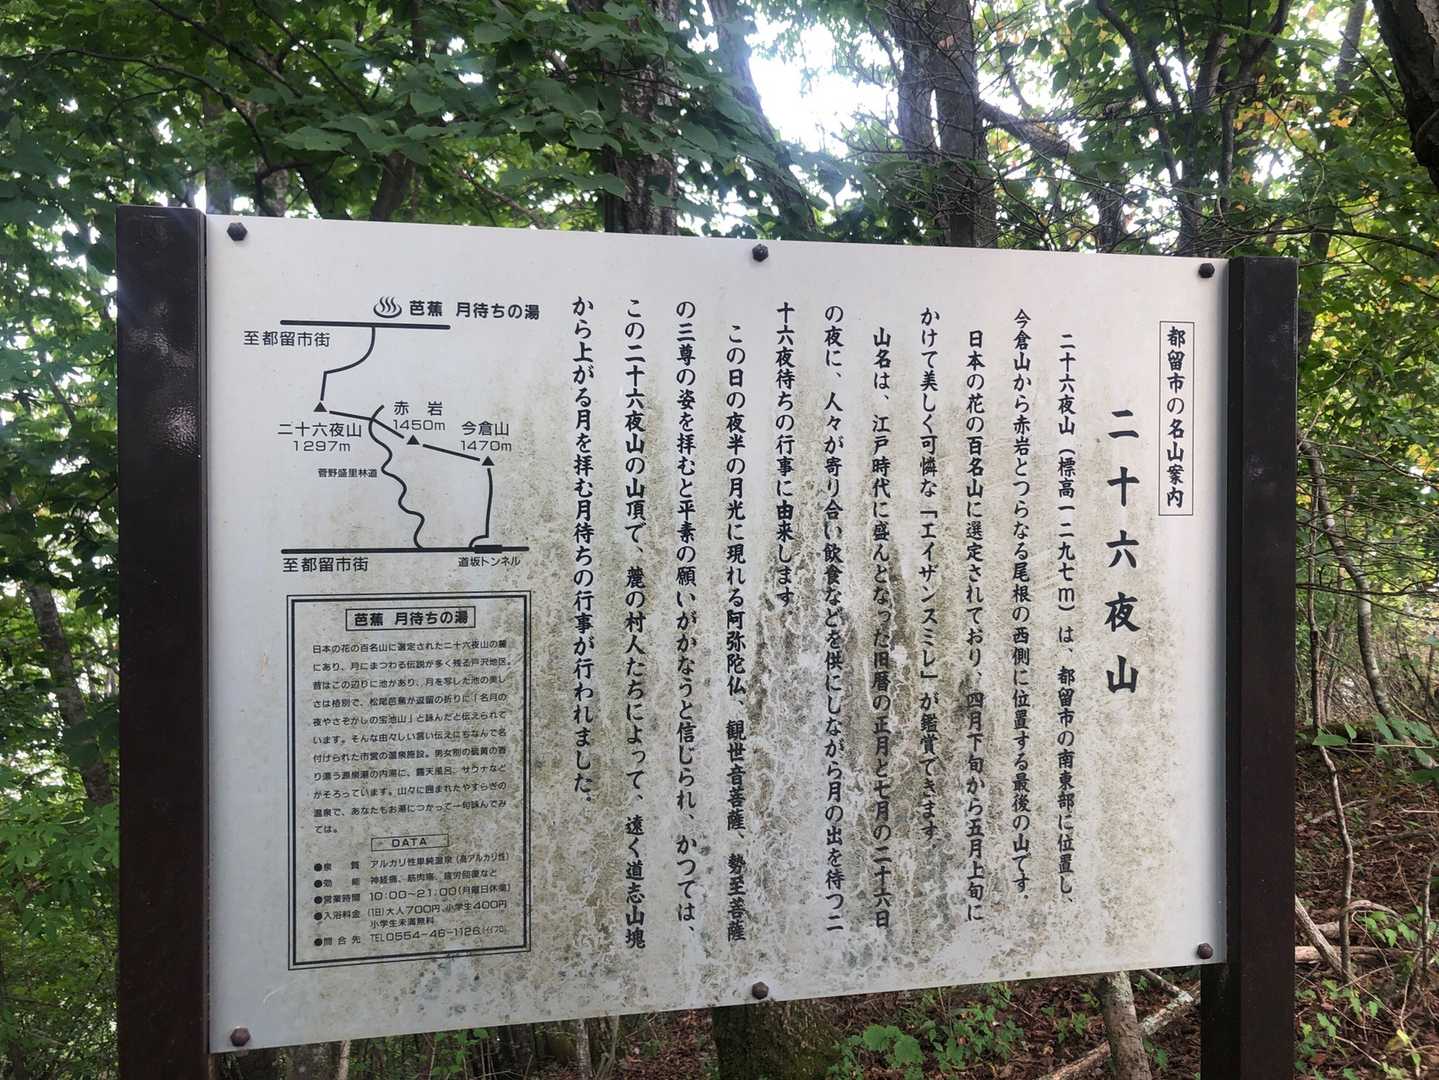 都留市の名山案内
二十六夜山
二十六夜山（標高一二九七ｍ）は、都留市の南東部に位置し、
今倉山から赤岩とつらなる尾根の西側に位置する最後の山です。
日本の花の百名山に選定されており、四月下旬から五月上旬に
かけて美しく可憐な「エイザンスミレ」が鑑賞できます。
山名は、江戸時代に盛んとなった旧暦の正月と七月の二十六日
の夜に、人々が寄り合い飲食などを供にしながら月の出を待つ二
十六夜待ちの行事に由来します。
この日の夜半の月光に現れる阿弥陀仏、観世音菩薩、勢至菩薩
の三尊の姿を拝むと平素の願いがかなうと信じられ、かつては、
この二十六夜山の山頂で、麓の村人たちによって、遠く道志山塊
から上がる月を拝む月待ちの行事が行われました。
芭蕉 月待ちの湯
至都留市街
赤岩
1450m
二十六夜山
1297m
今倉山
1470m
菅野盛里林道
至都留市街
道坂トンネル
芭蕉 月待ちの湯
日本の花の百名山に選定された二十六夜山の麓
にあり、月にまつわる伝説が多く残る戸沢地区。
昔はこの辺りに池があり、月を写した池の美し
さは格別で、松尾芭蕉が逗留の折りに「名月の
夜やさぞかしの宝池山」と詠んだと伝えられて
います。そんな由々しい言い伝えにちなんで名
付けられた市営の温泉施設。男女別の硫黄の香
り漂う源泉湯の内湯に、露天風呂、サウナなど
がそろっています。山々に囲まれたやすらぎの
温泉で、あなたもお湯につかって一句詠んでみ
ては。
DATA
●泉質 アルカリ性単純温泉（高アルカリ性）
●効能 神経痛、筋肉痛、疲労回復など
●営業時間 10:00～21:00（月曜日休業）
●入浴料金 （1日）大人700円、小学生400円
小学生未満無料
●問合先 TEL0554-46-1126